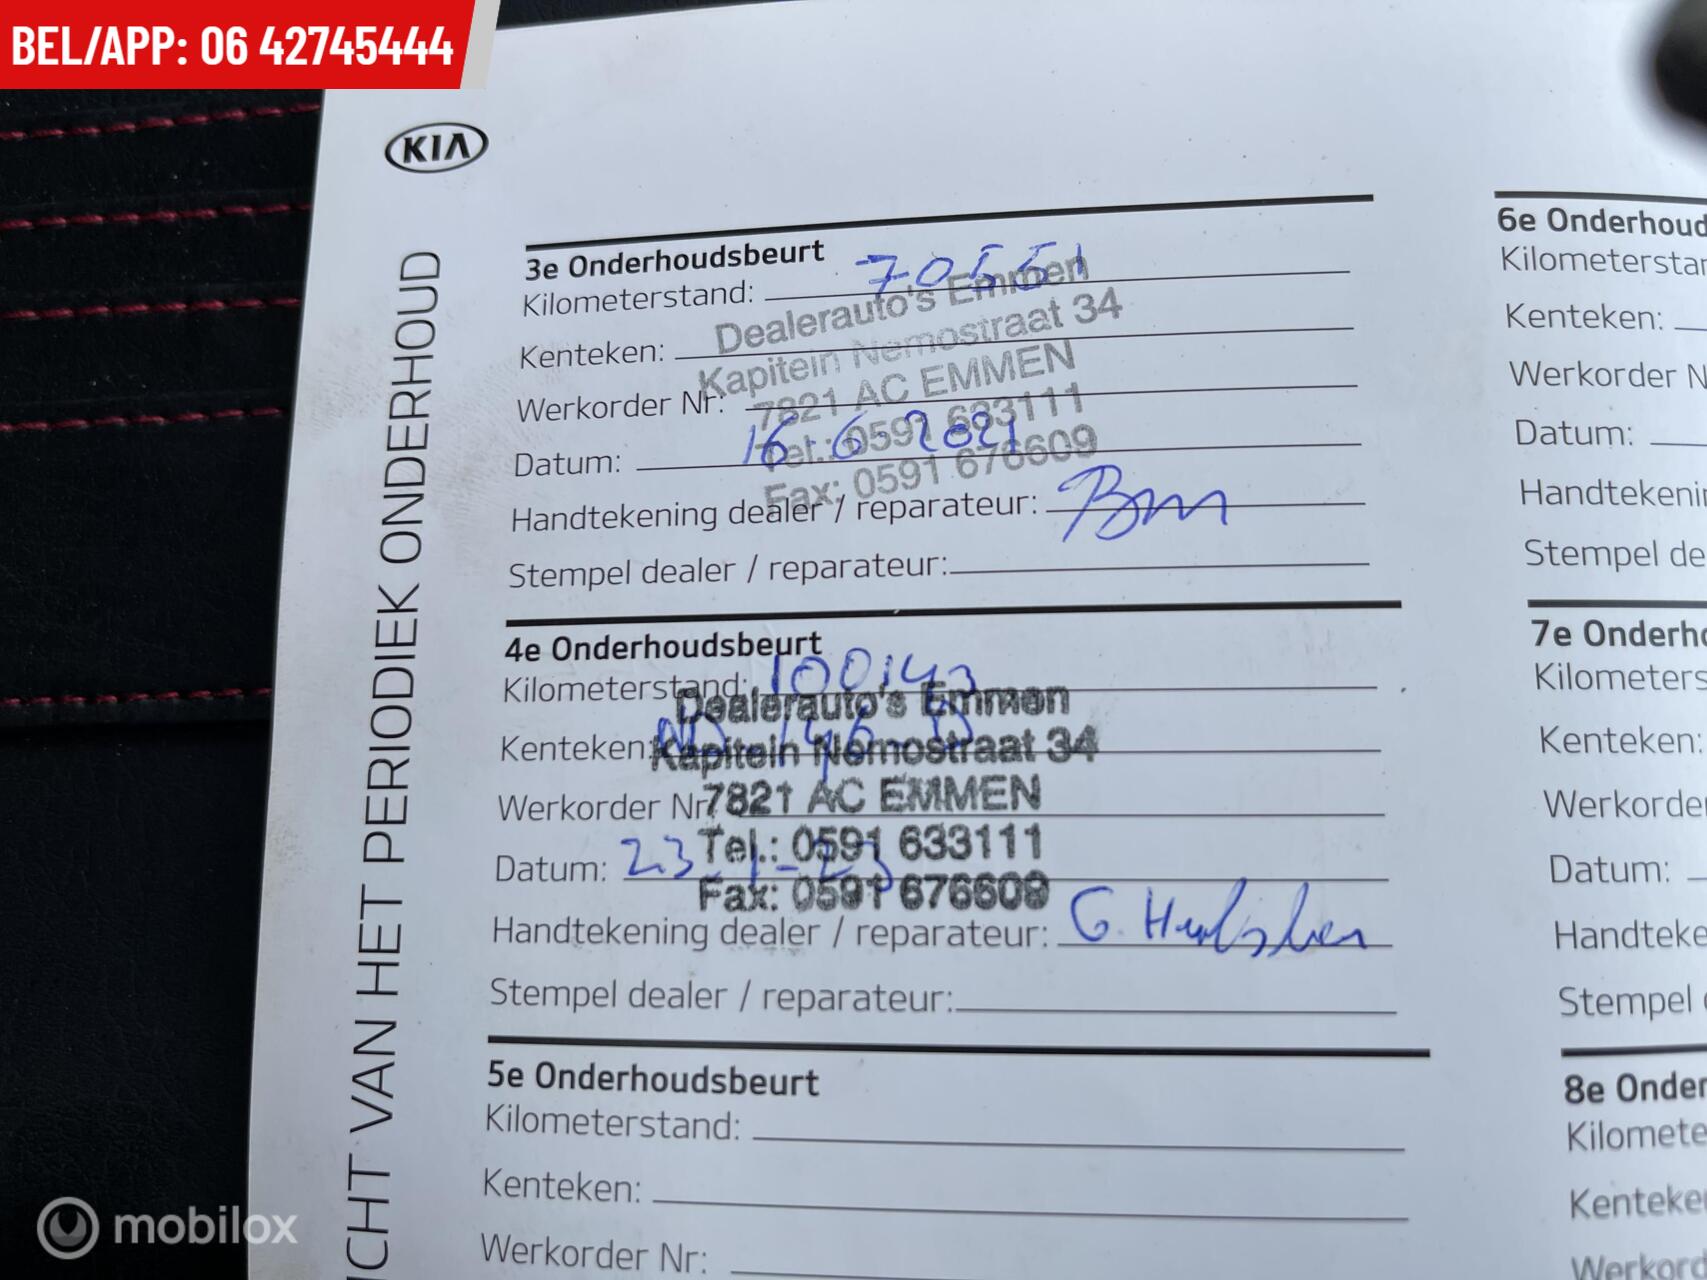 BEL/APP: 06 42745444
KIA
CHT VAN HET PERIODIEK ONDERHOUD
3e Onderhoudsbeurt
Kilometerstand: 70551
Kenteken:
Werkorder Nr:
Datum: 16-6-2021
Handtekening dealer / reparateur:
Stempel dealer / reparateur:
Dealerauto's Emmen
Kapitein Nemostraat 34
7821 AC EMMEN
Tel.: 0591 633111
Fax: 0591 676609
4e Onderhoudsbeurt
Kilometerstand: 100143
Kenteken:
Werkorder Nr
Datum: 23-1-23
Handtekening dealer / reparateur: G.
Stempel dealer / reparateur:
Dealerauto's Emmen
Kapitein Nemostraat 34
7821 AC EMMEN
Tel.: 0591 633111
Fax: 0591 676609
5e Onderhoudsbeurt
Kilometerstand:
Kenteken:
Werkorder Nr:
6e Onderhoud
Kilometerstar
Kenteken:
Werkorder N
Datum:
Handtekenin
Stempel de
7e Onderho
Kilometers
Kenteken:
Werkorde
Datum:
Handteke
Stempel
8e Onder
Kilomete
Kenteke
Werkord
mobilox